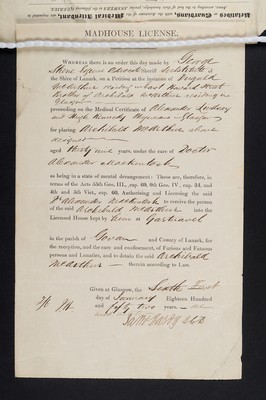 MADHOUSE LICENSE.
WHEREAS there is an order this day made by George
Skene Esquire Advocate Sheriff Substitute of
the Shire of Lanark, on a Petition at the instance of
McArthur residing in East Howard Street
Brother of Archibald McArthur residing in
Glasgow
proceeding on the Medical Certificate of Alexander Lindsay
and Hugh Kennedy Physicians in Glasgow
for placing Archibald McArthur above
designed
aged thirty nine years, under the care of Doctor
Alexander Mackintosh
as being in a state of mental derangement: These are, therefore, in
terms of the Acts 55th Geo, III., cap. 69, 9th Geo. IV., cap. 34, and
4th and 5th Vict., cap. 60, Authorising and Licensing the said
Dr Alexander Mackintosh to receive the person
of the said Archibald McArthur into the
Licensed House kept by him at Gartnavel
in the parish of Govan and County of Lanark, for
the reception, and the care and confinement, of Furious and Fatuous
persons and Lunatics, and to detain the said Archibald
McArthur therein according to Law.
Given at Glasgow, the Sixth
day of January Eighteen Hundred
and fifty two years.